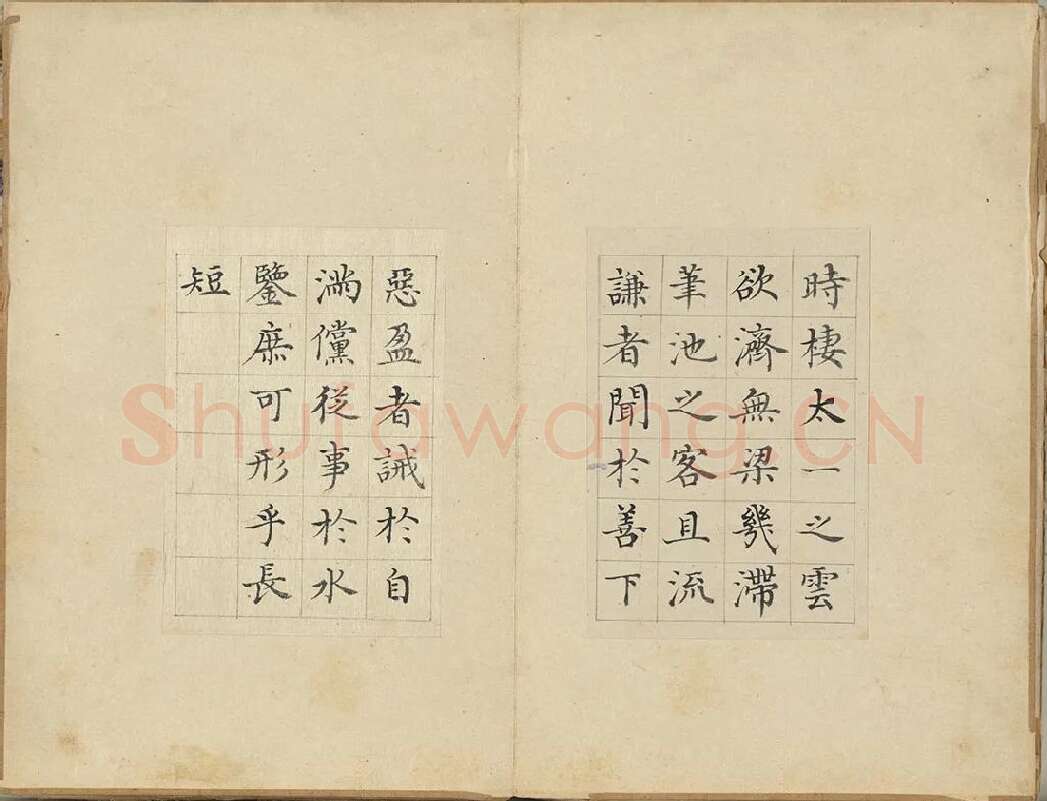 時棲太一之雲
欲濟無梁幾滯
筆池之客且流
謙者聞於善下
惡盈者誡於自
滿儻從事於水
鑒庶可形乎長
短
Shufawang.CN